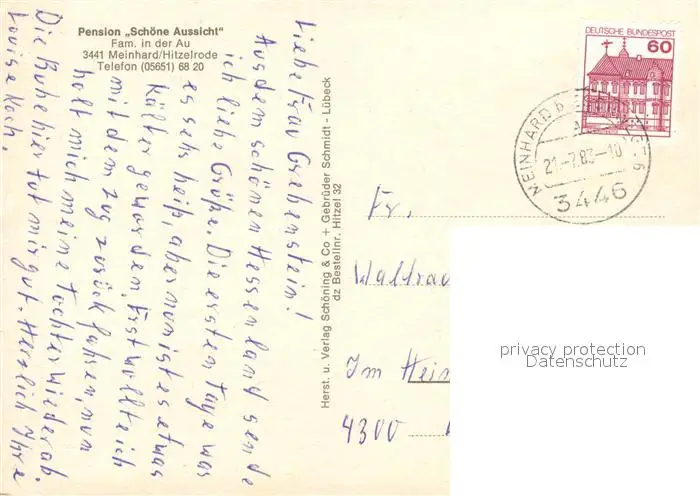 Pension „Schöne Aussicht"
Fam. in der Au
3441 Meinhard/Hitzelrode
Telefon (05651) 68 20
Liebe Frau Grebenstein!
Aus dem schönen Hessenland sende
ich liebe Grüße. Die ersten Tage war
es sehr heiß, aber nun ist es etwas
kälter geworden. Erst wollte ich
mit dem Zug zurück fahren, nun
holt mich meine Tochter wieder ab.
Die Ruhe hier tut mir gut. Herzlich Ihre
Louise Koch.
Herst. u. Verlag Schöning & Co + Gebrüder Schmidt - Lübeck
dz Bestellnr. Hitzel 32
DEUTSCHE BUNDESPOST
60
MEINHARD b
21.-7.83-10
3446
Fr.
Waldrau
Im Hein
4300
privacy protection
Datenschutz